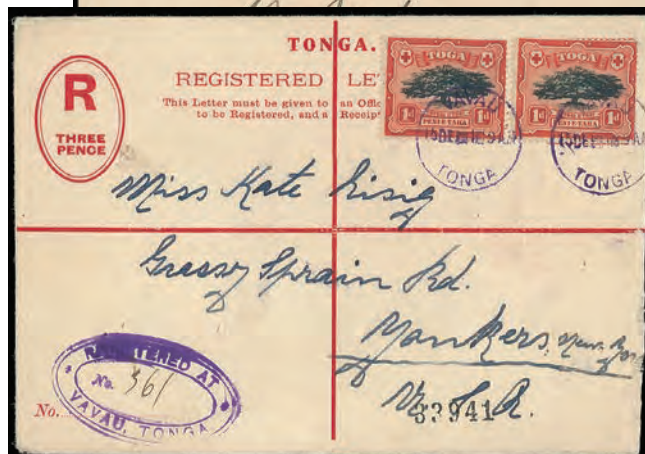 TONGA.
R
THREE
PENCE
REGISTERED LE
This Letter must be given to an Offic
to be Registered, and a Receip
TOGA TOGA
1d 1d 1d 1d
VAVAU
15 DEC 9 AM
TONGA
DEC 9 A
TONGA
Miss Kate
Grassy Sprain Rd.
Yonkers, New York
U.S.A.
33941
REGISTERED AT
No. 361
VAVAU, TONGA
No.